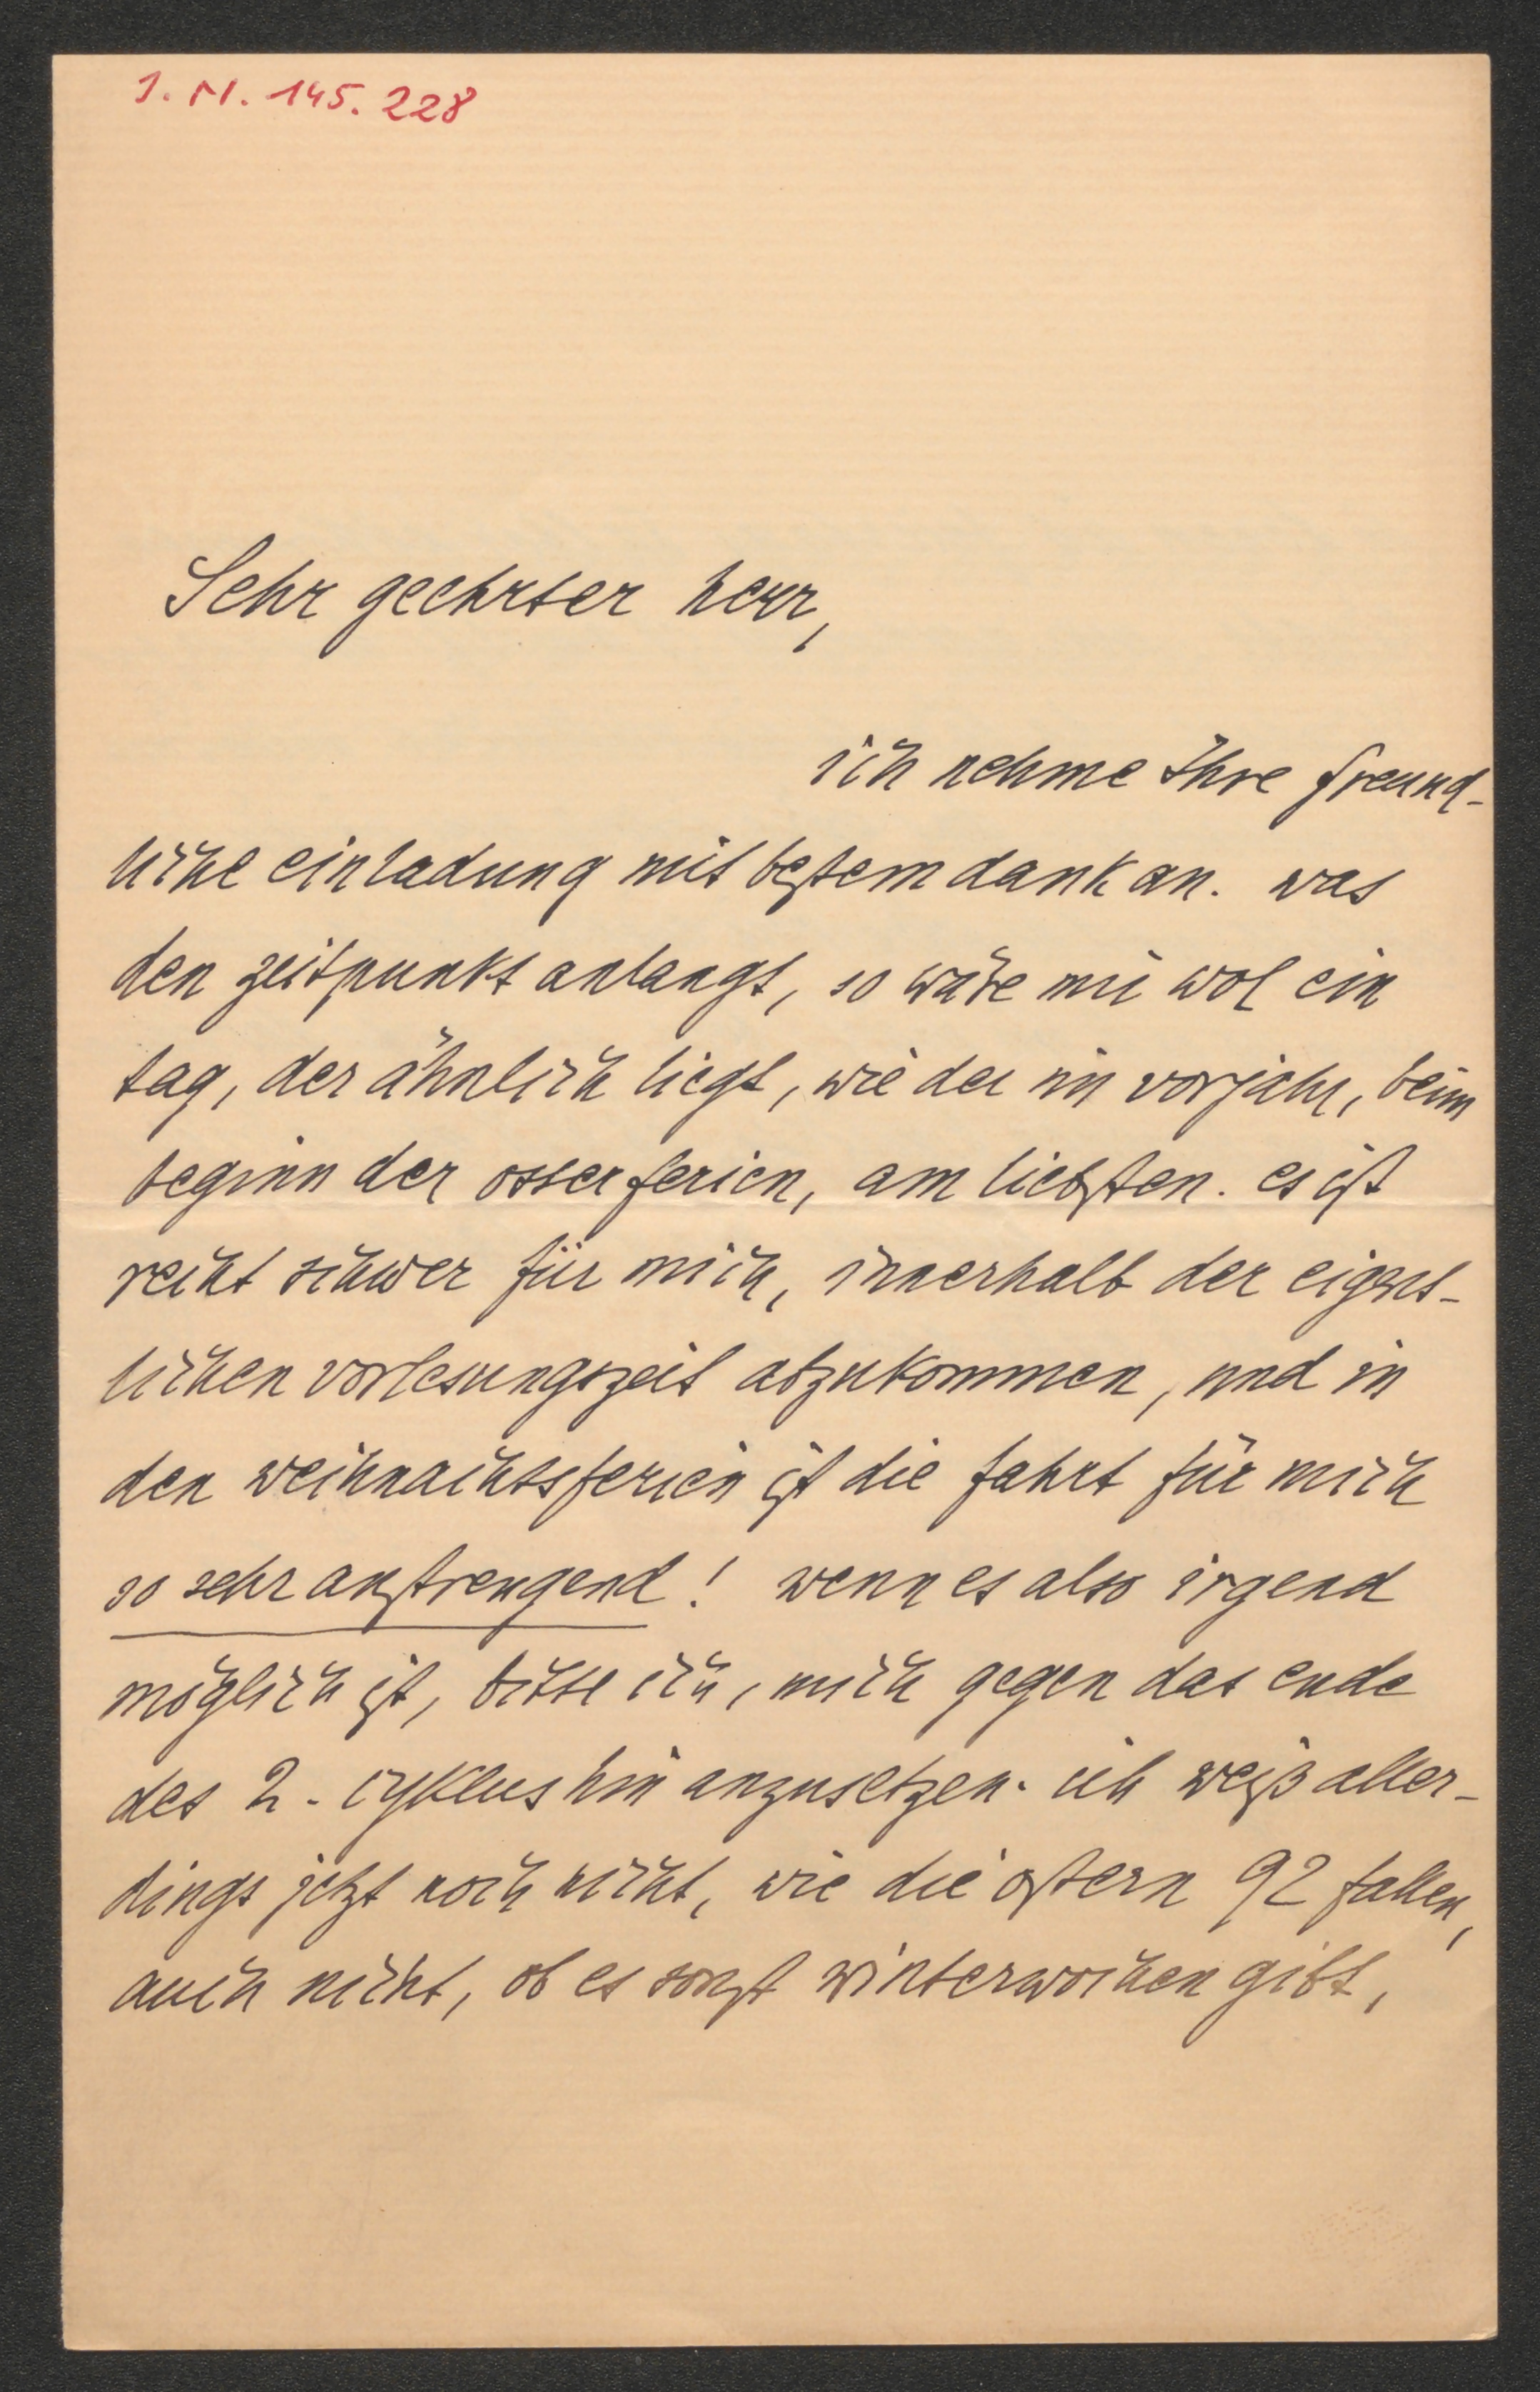 I. N. 145.228
Sehr geehrter herr,
ich nehme Ihre freund-
liche einladung mit bestem dank an. was
den zeitpunkt anlangt, so wäre mir wol ein
tag, der ähnlich liegt, wie der im vorjahr, beim
beginn der osterferien, am liebsten. es ist
recht schwer für mich, innerhalb der eigent-
lichen vorlesungszeit abzukommen, und in
den weihnachtsferien ist die fahrt für mich
so sehr anstrengend! wenn es also irgend
möglich ist, bitte ich, mich gegen das ende
des 2. cyklus hin anzusetzen. ich weiß aller-
dings jetzt noch nicht, wie die ostern 92 fallen,
auch nicht, ob es sonst winterwochen gibt,